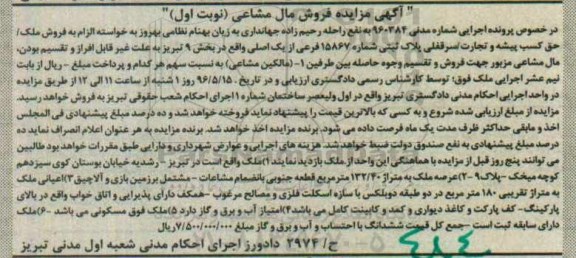 " آگهی مزایده فروش مال مشاعی (نوبت اول)"
در خصوص پرونده اجرایی شماره مدنی ۹۶۰۳۸۴ به نفع راحله رحیم زاده جهانداری به زیان بهنام نظامی بهروز به خواسته الزام به فروش ملک/
حق کسب پیشه و تجارت/سرقفلی پلاک ثبتی شماره ۱۵۸۶۷ فرعی از یک اصلی واقع در بخش ۹ تبریز به علت غیر قابل افراز و تقسیم بودن،
مال مشاعی مزبور جهت فروش و تقسیم وجوه حاصله بین طرفین ۱- (مالکین مشاعی) به نسبت سهم هر کدام و پرداخت مبلغ - ریال از بابت
نیم عشر اجرایی ملک فوق: توسط کارشناس رسمی دادگستری ارزیابی و در تاریخ ۹۶/۵/۱۵ روز ۱ شنبه از ساعت ۱۱ الی ۱۲ از طریق مزایده
در واحد اجرایی احکام مدنی دادگستری تبریز واقع در اول ولیعصر ساختمان شماره ۱ اجرای احکام شعب حقوقی تبریز به فروش خواهد رسید.
مزایده از مبلغ ارزیابی شده شروع و به کسی که بالاترین قیمت را پیشنهاد نماید فروخته خواهد شد و ده درصد مبلغ پیشنهادی فی المجلس
اخذ و مابقی حداکثر ظرف مدت یک ماه فرصت داده می شود. برنده مزایده اخذ خواهد شد. برنده مزایده به هر عنوان اعلام انصراف نماید ده
درصد مبلغ پیشنهادی به نفع صندوق دولت ضبط خواهد شد. هزینه های اجرایی و عوارض شهرداری و دارایی طبق مقررات خواهد بود طالبین
می توانند پنج روز قبل از مزایده با هماهنگی این واحد از ملک بازدید نمایند ۱)ملک واقع است در تبریز - رشدیه خیابان بوستان کوی سیزدهم
کوچه میخک -پلاک۹ -۲)عرصه ملک به متراژ ۱۳۲/۴۰ مترمربع قطعه جنوبی بانضمام مشاعات - مشتمل برزمین بازی و آلاچیق ۳)اعیانی ملک
به متراژ تقریبی ۱۸۰ متر مربع در دو طبقه دوبلکس با سازه اسکلت فلزی و مصالح مرغوب -همکف دارای پذیرایی و اتاق خواب واقع در بالای
پارکینگ- کف پارکت و کاغذ دیواری و کمد و کابینت کامل می باشد ۴)امتیاز آب و برق و گاز دارد ۵)ملک فوق مسکونی می باشد -۶)ملک
دارای سابقه ثبت است -جمع کل قیمت ششدانگ با احتساب و آب و برق و گاز مبلغ ۷/۵۰۰/۰۰۰/۰۰۰ریال
ح/ ۲۹۷۴ دادورز اجرای احکام مدنی شعبه اول مدنی تبریز